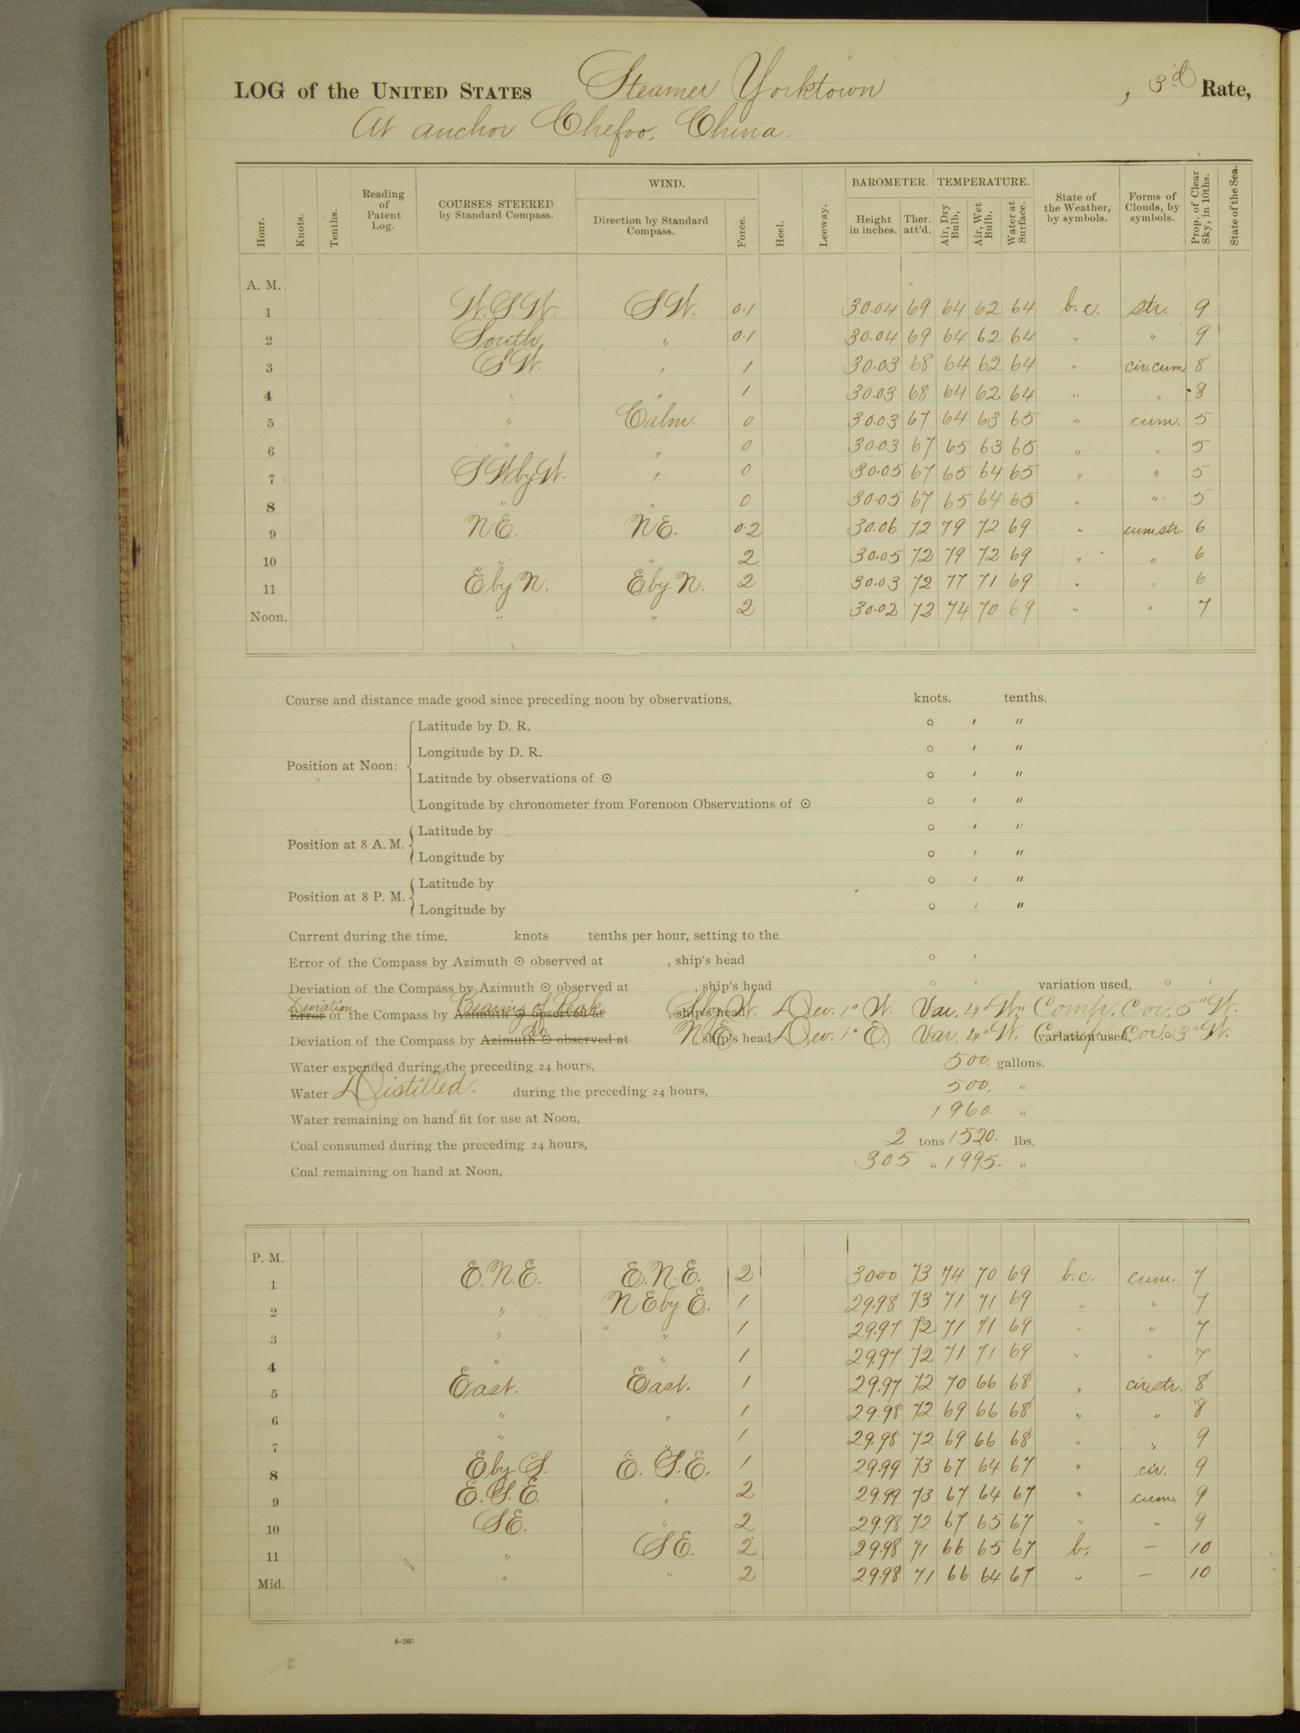 LOG of the UNITED STATES Steamer Yorktown, 3d Rate,
At anchor Chefoo, China.
Hour. Knots. Tenths. Reading of Patent Log. COURSES STEERED by Standard Compass. WIND. Direction by Standard Compass. Force. Heel. Leeway. BAROMETER. Height in inches. Ther. att'd. TEMPERATURE. Air, Dry Bulb, Air, Wet Bulb. Water at Surface. State of the Weather, by symbols. Forms of Clouds, by symbols. Prop. of Clear Sky, in 10ths. State of the Sea.
A. M.
1 W.S.W. S.W. 0.1 30.04 69 64 62 64 b.c. str. 9
2 South " 0.1 30.04 69 64 62 64 " " 9
3 SW. " 1 30.03 68 64 62 64 " cir.cum. 8
4 " " 1 30.03 68 64 62 64 " " 8
5 " Calm. 0 30.03 67 64 63 65 " cum. 5
6 " " 0 30.03 67 65 63 65 " " 5
7 SWbyW. " 0 30.05 67 65 64 65 " " 5
8 " " 0 30.05 67 65 64 65 " " 5
9 NE. NE. 0.2 30.06 72 79 72 69 " cum.str. 6
10 " " 2 30.05 72 79 72 69 " " 6
11 EbyN. EbyN. 2 30.03 72 77 71 69 " " 6
Noon. " " 2 30.02 72 74 70 69 " " 7
Course and distance made good since preceding noon by observations, knots. tenths.
Position at Noon:
Latitude by D. R. ° ' "
Longitude by D. R. ° ' "
Latitude by observations of ☉ ° ' "
Longitude by chronometer from Forenoon Observations of ☉ ° ' "
Position at 8 A. M.
Latitude by ° ' "
Longitude by ° ' "
Position at 8 P. M.
Latitude by ° ' "
Longitude by ° ' "
Current during the time, knots tenths per hour, setting to the
Error of the Compass by Azimuth ☉ observed at , ship's head ° '
Deviation of the Compass by Azimuth ☉ observed at , ship's head ° ' variation used, ° '
Deviation Error of the Compass by Bearing of Peak Azimuth ☉ observed at , ship's head SbyW. Dev. 1° W. Var. 4° W. Comp. Cor. 5° W.
Deviation of the Compass by Do Azimuth ☉ observed at , ship's head N.E. Dev. 1° E. Var. 4° W. variation used, Comp. Cor. 3° W.
Water expended during the preceding 24 hours, 500. gallons.
Water Distilled. during the preceding 24 hours, 500. "
Water remaining on hand fit for use at Noon, 1960. "
Coal consumed during the preceding 24 hours, 2 tons 1520. lbs.
Coal remaining on hand at Noon, 305 " 1995. "
P. M.
1 E.N.E. E.N.E. 2 3000 73 74 70 69 b.c. cum. 7
2 " NEbyE. 1 29.98 73 71 71 69 " " 7
3 " " 1 29.97 72 71 71 69 " " 7
4 " " 1 29.97 72 71 71 69 " " 7
5 East. East. 1 29.97 72 70 66 68 " cir.str. 8
6 " " 1 29.98 72 69 66 68 " " 8
7 " " 1 29.98 72 69 66 68 " " 9
8 EbyS. E.S.E. 1 29.99 73 67 64 67 " cir. 9
9 E.S.E. " 2 29.99 73 67 64 67 " cum. 9
10 SE. " 2 29.98 72 67 65 67 " " 9
11 " SE. 2 29.98 71 66 65 67 b. — 10
Mid. " " 2 29.98 71 66 64 67 " — 10
4-265